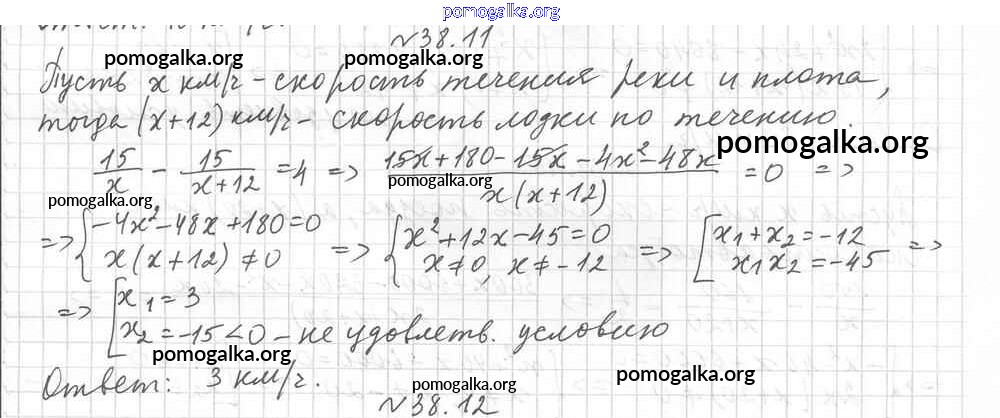 pomogalka.org
№38.11
pomogalka.org pomogalka.org
Пусть x км/ч - скорость течения реки и плота,
тогда (x+12) км/ч - скорость лодки по течению.
pomogalka.org
15/x - 15/(x+12) = 4 => (15x+180-15x-4x²-48x)/(x(x+12)) = 0 =>
pomogalka.org pomogalka.org
=> { -4x²-48x+180=0 => { x²+12x-45=0 => [ x₁+x₂=-12 =>
x(x+12)≠0 x≠0, x≠-12 x₁x₂=-45
=> [ x₁=3
x₂=-15<0 - не удовлетв. условию
pomogalka.org
Ответ: 3 км/ч.
pomogalka.org pomogalka.org
№38.12